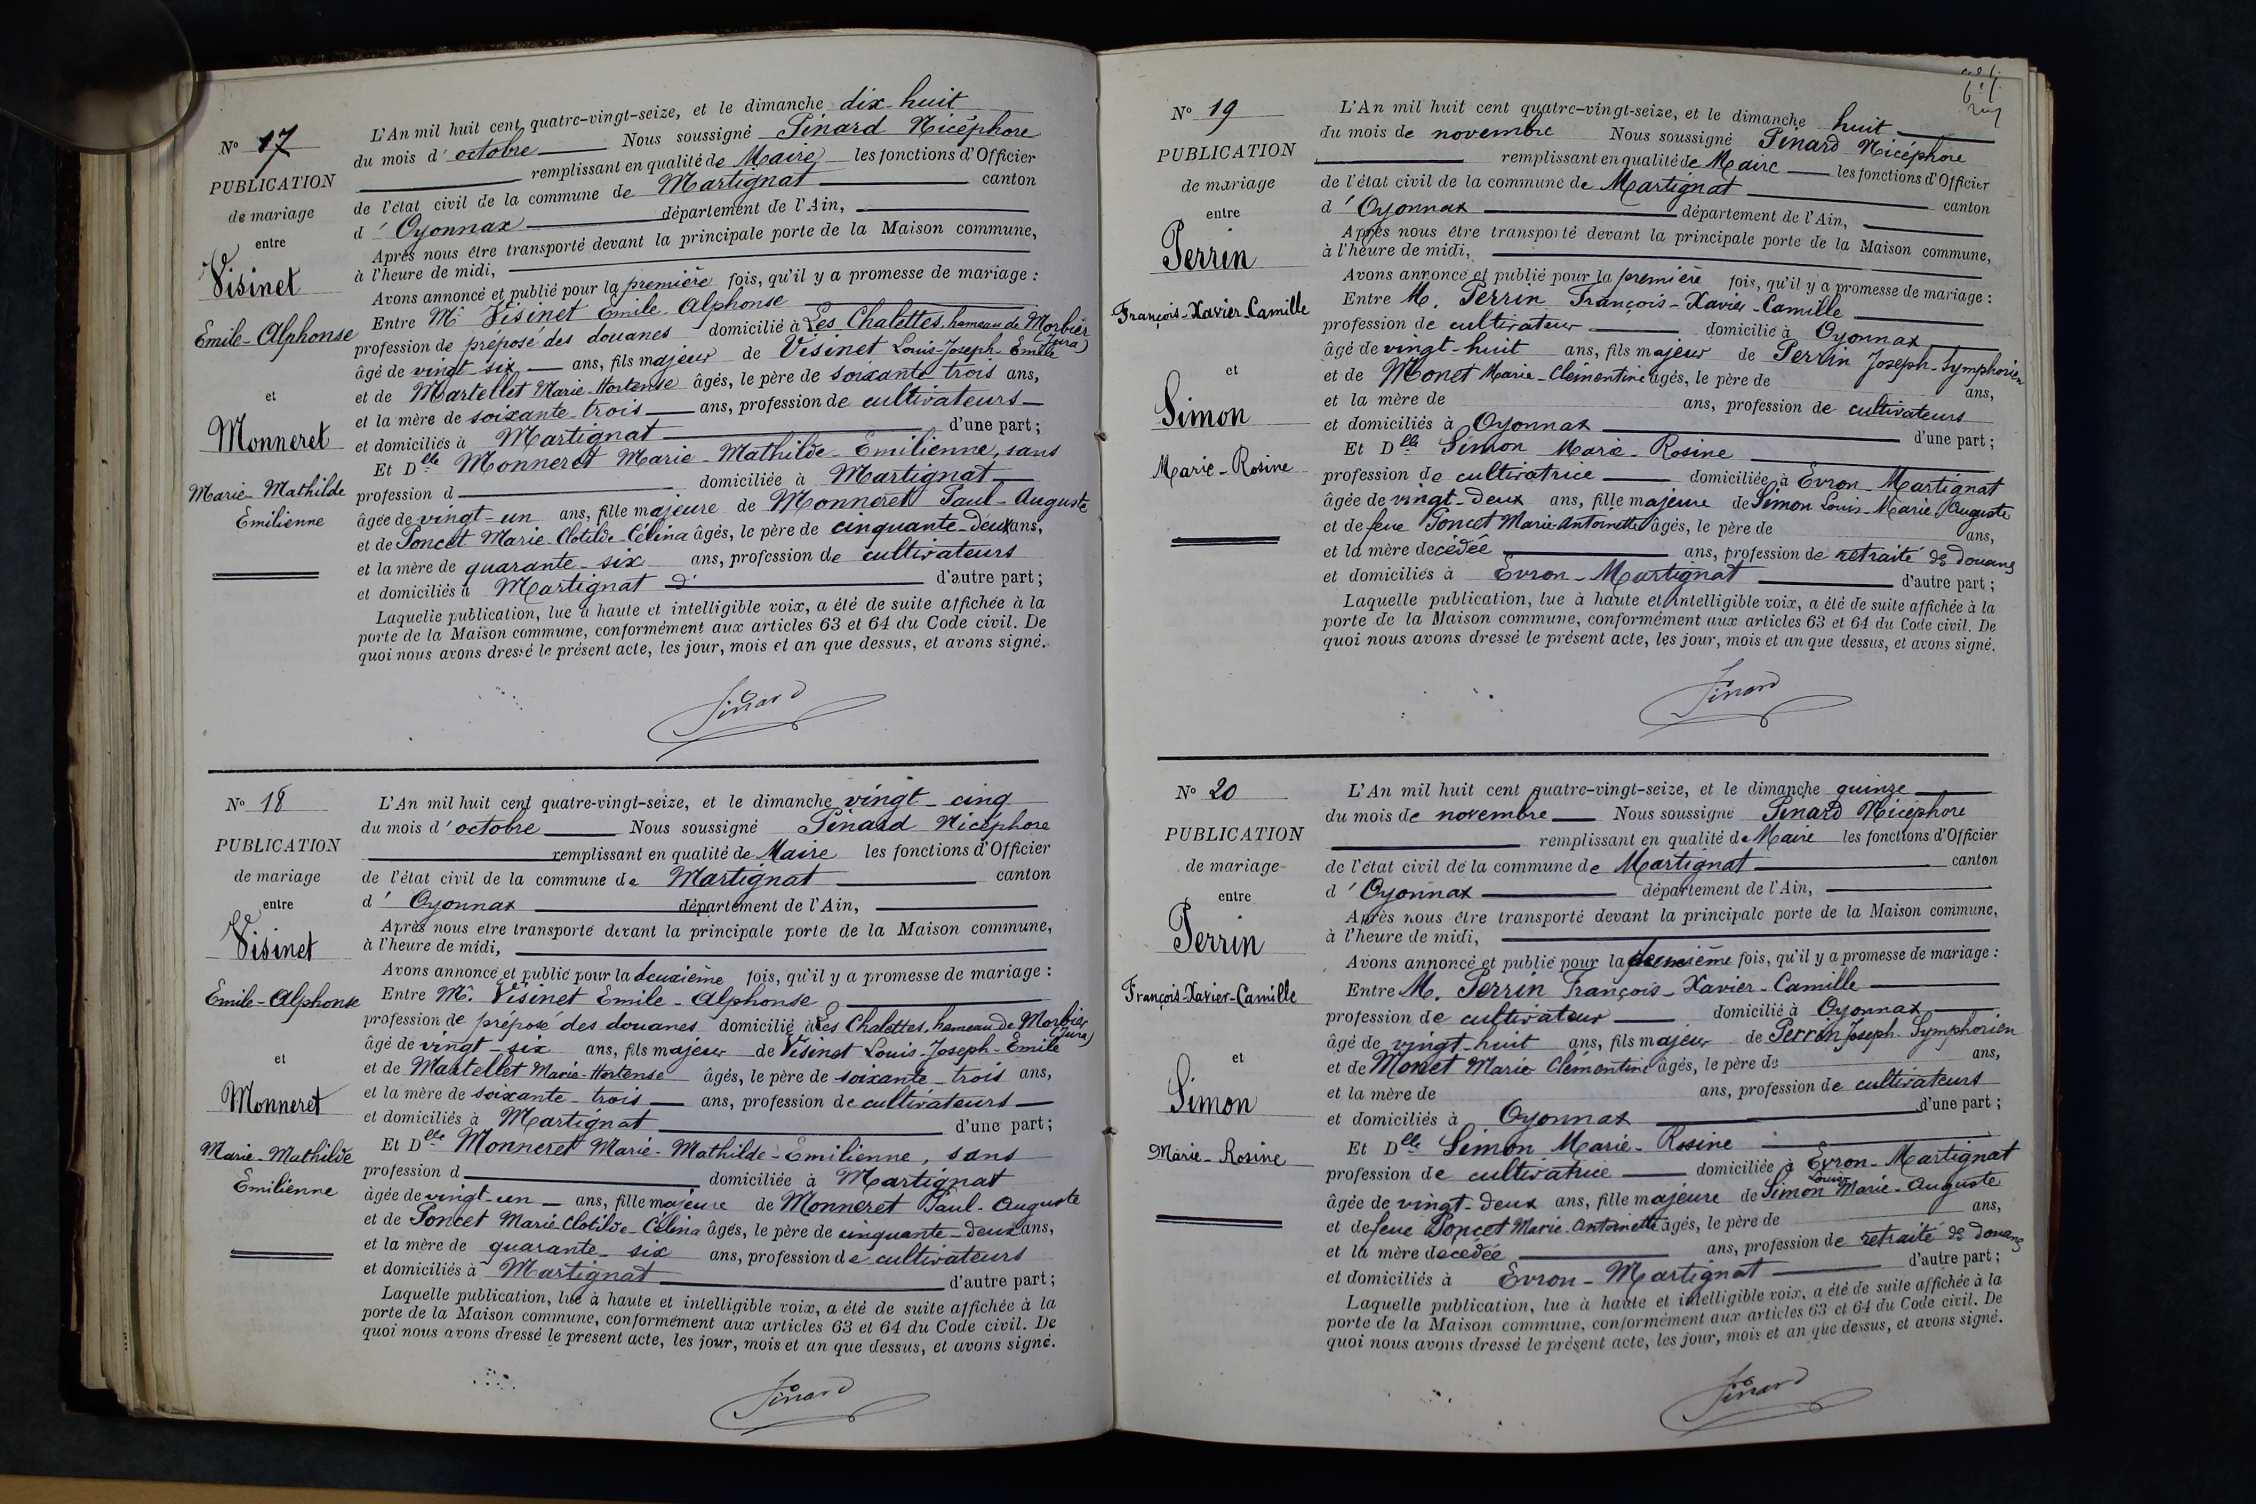 N° 17
PUBLICATION
de mariage
entre
Visinet
Emile-Alphonse
et
Monneret
Marie-Mathilde
Emilienne
L'An mil huit cent quatre-vingt-seize, et le dimanche dix-huit
du mois d'octobre Nous soussigné Pinard Nicéphore
remplissant en qualité de Maire les fonctions d'Officier
de l'état civil de la commune de Martignat canton
d'Oyonnax département de l'Ain,
Après nous être transporté devant la principale porte de la Maison commune,
à l'heure de midi,
Avons annoncé et publié pour la première fois, qu'il y a promesse de mariage :
Entre Mr Visinet Emile-Alphonse
profession de préposé des douanes domicilié à Les Chalettes, hameau de Morbier (Jura)
âgé de vingt-six ans, fils majeur de Visinet Louis-Joseph-Emile
et de Martellet Marie-Hortense âgés, le père de soixante-trois ans,
et la mère de soixante-trois ans, profession de cultivateurs
et domiciliés à Martignat d'une part ;
Et Dlle Monneret Marie-Mathilde-Emilienne, sans
profession d domiciliée à Martignat
âgée de vingt-un ans, fille majeure de Monneret Paul-Auguste
et de Poncet Marie-Clotilde-Célina âgés, le père de cinquante-deux ans,
et la mère de quarante-six ans, profession de cultivateurs
et domiciliés à Martignat d' d'autre part ;
Laquelle publication, lue à haute et intelligible voix, a été de suite affichée à la
porte de la Maison commune, conformément aux articles 63 et 64 du Code civil. De
quoi nous avons dressé le présent acte, les jour, mois et an que dessus, et avons signé.
Pinard
N° 18
PUBLICATION
de mariage
entre
Visinet
Emile-Alphonse
et
Monneret
Marie-Mathilde
Emilienne
L'An mil huit cent quatre-vingt-seize, et le dimanche vingt-cinq
du mois d'octobre Nous soussigné Pinard Nicéphore
remplissant en qualité de Maire les fonctions d'Officier
de l'état civil de la commune de Martignat canton
d'Oyonnax département de l'Ain,
Après nous etre transporté devant la principale porte de la Maison commune,
à l'heure de midi,
Avons annoncé et publié pour la deuxième fois, qu'il y a promesse de mariage :
Entre Mr. Visinet Emile-Alphonse
profession de préposé des douanes domicilié à Les Chalettes, hameau de Morbier (Jura)
âgé de vingt-six ans, fils majeur de Visinet Louis-Joseph-Emile
et de Martellet Marie-Hortense âgés, le père de soixante-trois ans,
et la mère de soixante-trois ans, profession de cultivateurs
et domiciliés à Martignat d'une part ;
Et Dlle Monneret Marie-Mathilde-Emilienne, sans
profession d domiciliée à Martignat
âgée de vingt-un ans, fille majeure de Monneret Paul-Auguste
et de Poncet Marie Clotilde-Célina âgés, le père de cinquante-deux ans,
et la mère de quarante-six ans, profession de cultivateurs
et domiciliés à Martignat d'autre part ;
Laquelle publication, lue à haute et intelligible voix, a été de suite affichée à la
porte de la Maison commune, conformément aux articles 63 et 64 du Code civil. De
quoi nous avons dressé le present acte, les jour, mois et an que dessus, et avons signé.
Pinard
N° 19
PUBLICATION
de mariage
entre
Perrin
François-Xavier-Camille
et
Simon
Marie-Rosine
L'An mil huit cent quatre-vingt-seize, et le dimanche huit
du mois de novembre Nous soussigné Pinard Nicéphore
remplissant en qualité de Maire les fonctions d'Officier
de l'état civil de la commune de Martignat canton
d'Oyonnax département de l'Ain,
Après nous être transporté devant la principale porte de la Maison commune,
à l'heure de midi,
Avons annoncé et publié pour la première fois, qu'il y a promesse de mariage :
Entre M. Perrin François-Xavier-Camille
profession de cultivateur domicilié à Oyonnax
âgé de vingt-huit ans, fils majeur de Perrin Joseph-Symphorien
et de Monet Marie-Clémentine âgés, le père de ans,
et la mère de ans, profession de cultivateurs
et domiciliés à Oyonnax d'une part ;
Et Dlle Simon Marie-Rosine
profession de cultivatrice domiciliée à Evron-Martignat
âgée de vingt-deux ans, fille majeure de Simon Louis-Marie-Auguste
et de feue Poncet Marie-Antoinette âgés, le père de ans,
et la mère decédée ans, profession de retraité des douanes
et domiciliés à Evron-Martignat d'autre part ;
Laquelle publication, lue à haute et intelligible voix, a été de suite affichée à la
porte de la Maison commune, conformément aux articles 63 et 64 du Code civil. De
quoi nous avons dressé le présent acte, les jour, mois et an que dessus, et avons signé.
Pinard
N° 20
PUBLICATION
de mariage
entre
Perrin
François-Xavier-Camille
et
Simon
Marie-Rosine
L'An mil huit cent quatre-vingt-seize, et le dimanche quinze
du mois de novembre Nous soussigné Pinard Nicéphore
remplissant en qualité de Maire les fonctions d'Officier
de l'état civil de la commune de Martignat canton
d'Oyonnax département de l'Ain,
Après nous être transporté devant la principale porte de la Maison commune,
à l'heure de midi,
Avons annoncé et publié pour la deuxième fois, qu'il y a promesse de mariage :
Entre M. Perrin François-Xavier-Camille
profession de cultivateur domicilié à Oyonnax
âgé de vingt-huit ans, fils majeur de Perrin Joseph-Symphorien
et de Monet Marie Clémentine âgés, le père de ans,
et la mère de ans, profession de cultivateurs
et domiciliés à Oyonnax d'une part ;
Et Dlle Simon Marie-Rosine
profession de cultivatrice domiciliée à Evron-Martignat
âgée de vingt-deux ans, fille majeure de Simon Louis Marie-Auguste
et de feue Poncet Marie-Antoinette âgés, le père de ans,
et la mère decédée ans, profession de retraité des douanes
et domiciliés à Evron-Martignat d'autre part ;
Laquelle publication, lue à haute et intelligible voix, a été de suite affichée à la
porte de la Maison commune, conformément aux articles 63 et 64 du Code civil. De
quoi nous avons dressé le présent acte, les jour, mois et an que dessus, et avons signé.
Pinard